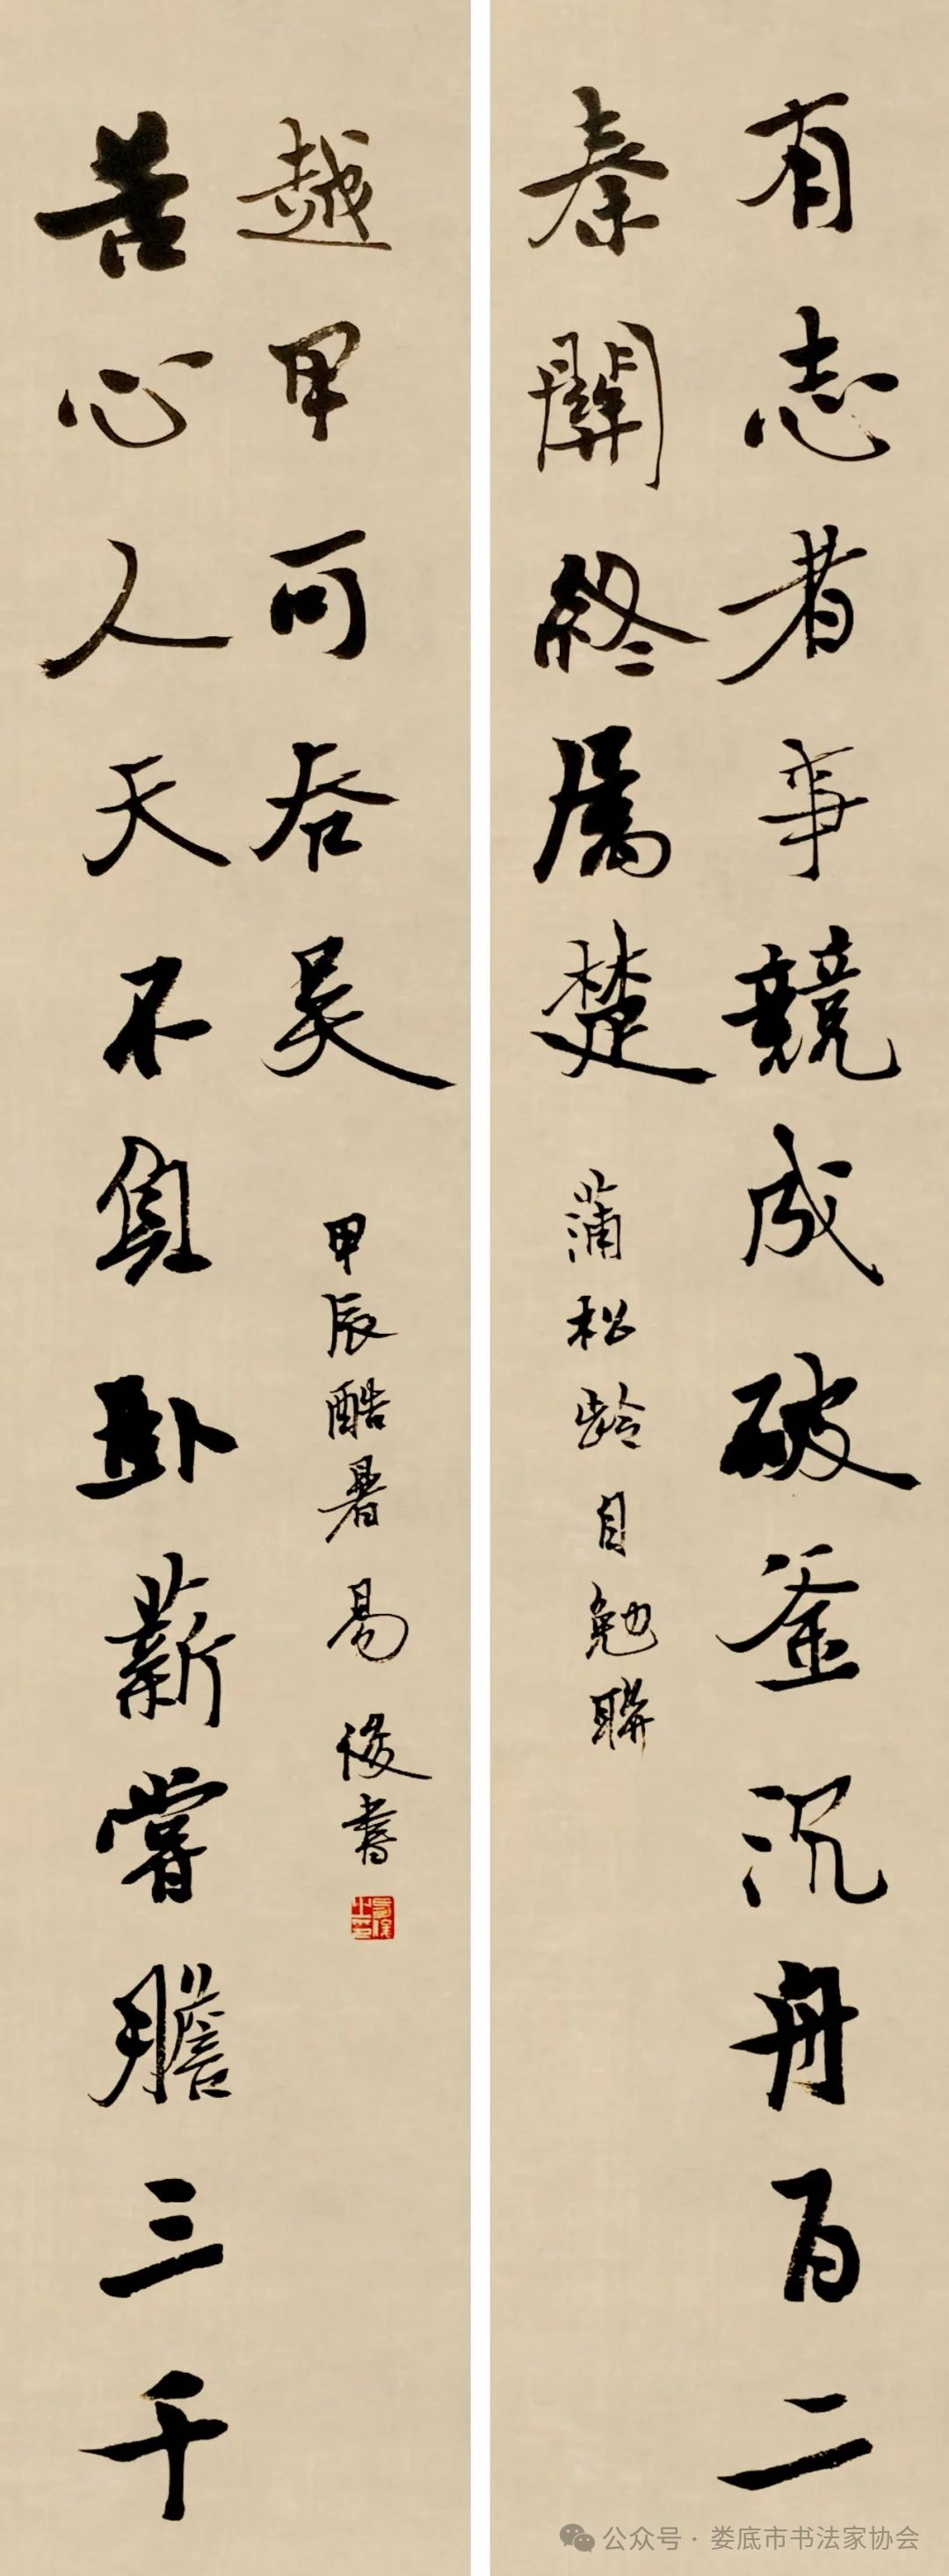 有志者事競成破釜沉舟百二
秦關終屬楚
蒲松齡自勉聯
苦心人天不負卧薪嘗膽三千
越甲可吞吴
甲辰酷暑易俊書
公众号·娄底市书法家协会